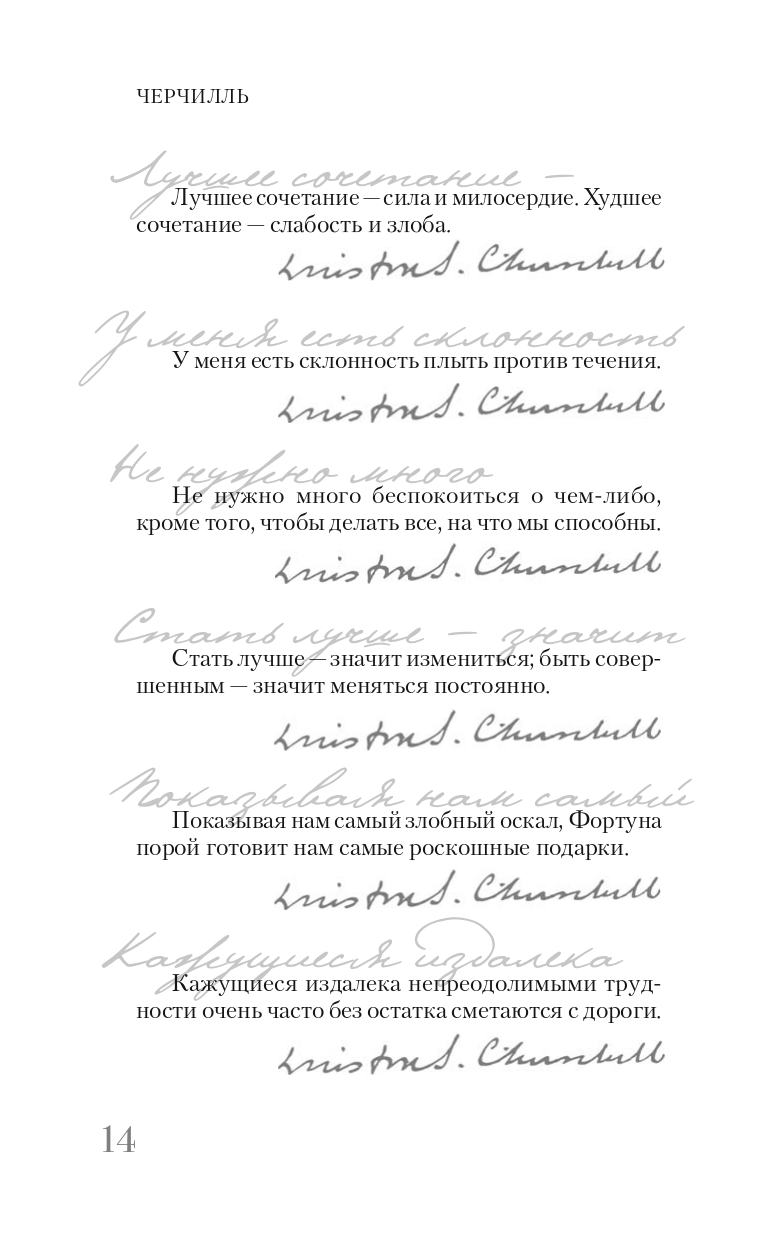 ЧЕРЧИЛЛЬ
Лучшее сочетание —
Лучшее сочетание — сила и милосердие. Худшее
сочетание — слабость и злоба.
Winston S. Churchill
У меня есть склонность
У меня есть склонность плыть против течения.
Winston S. Churchill
Не нужно много
Не нужно много беспокоиться о чем-либо,
кроме того, чтобы делать все, на что мы способны.
Winston S. Churchill
Стать лучше — значит
Стать лучше — значит измениться; быть совер-
шенным — значит меняться постоянно.
Winston S. Churchill
Показывая нам самый
Показывая нам самый злобный оскал, Фортуна
порой готовит нам самые роскошные подарки.
Winston S. Churchill
Кажущиеся издалека
Кажущиеся издалека непреодолимыми труд-
ности очень часто без остатка сметаются с дороги.
Winston S. Churchill
14